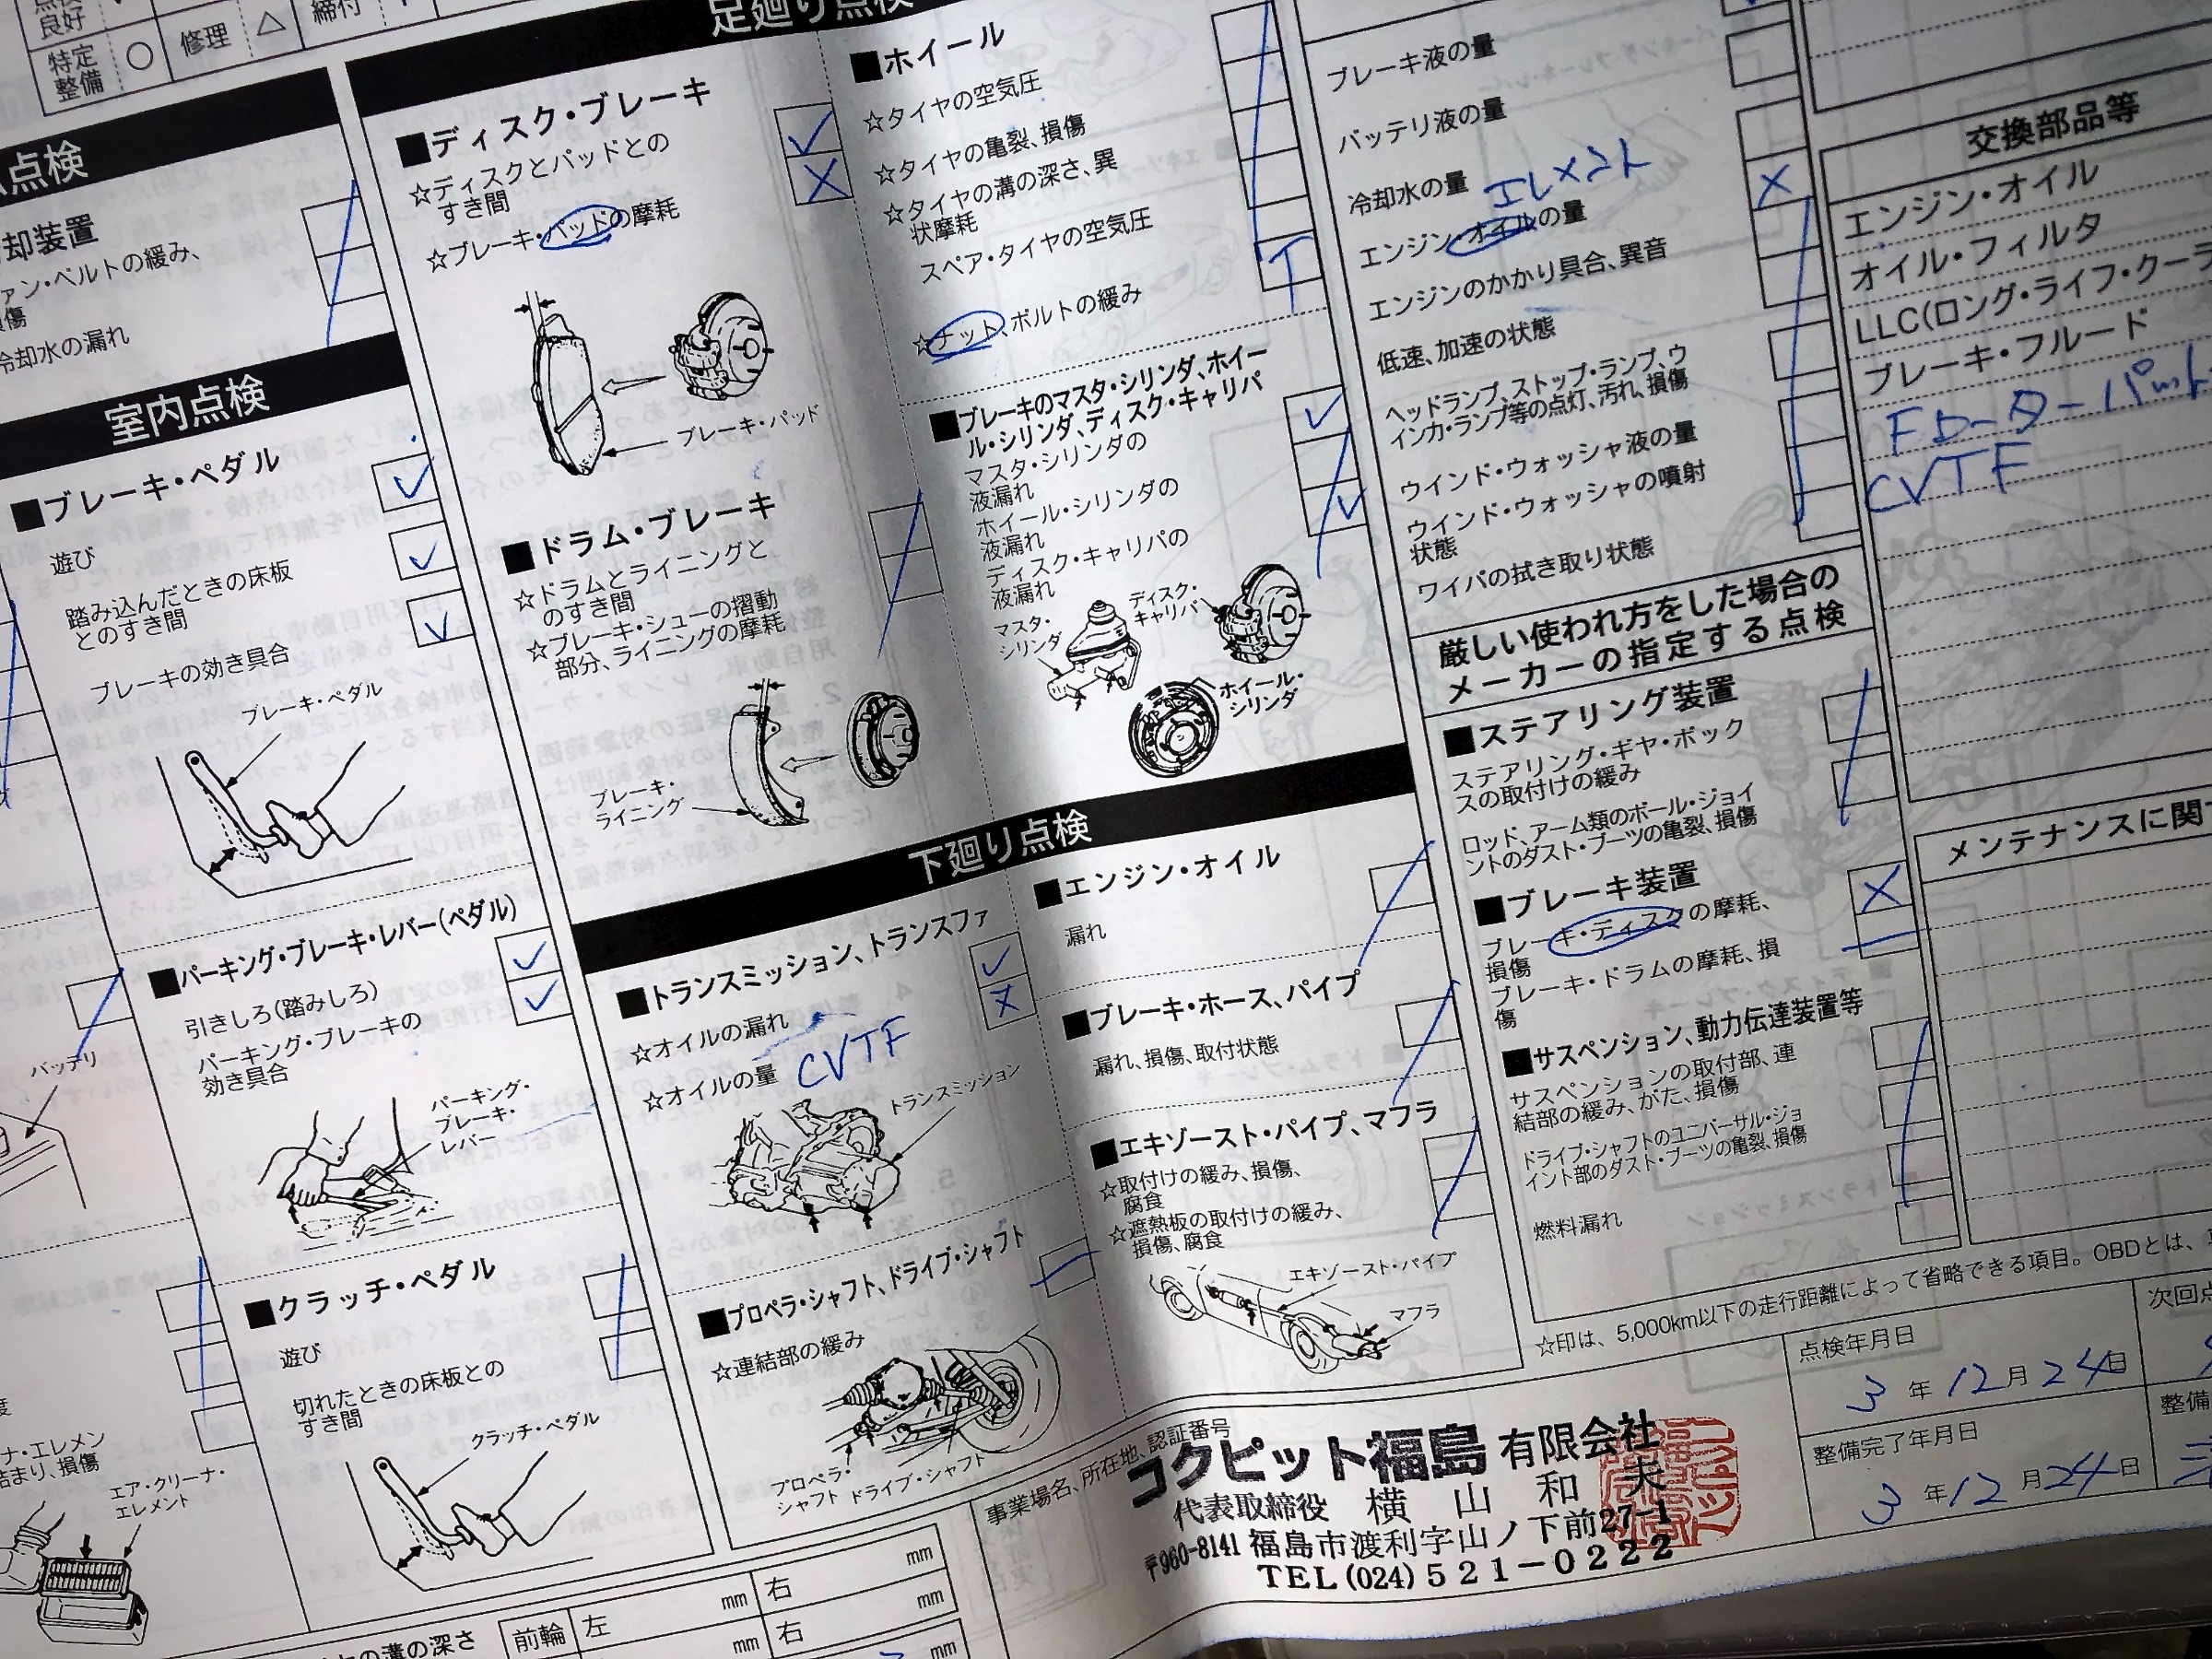 良好
特定
整備
○
修理
△
締付
点検
却装置
ァン・ベルトの緩み、
傷
冷却水の漏れ
室内点検
■ブレーキ・ペダル
遊び
踏み込んだときの床板
とのすき間
ブレーキの効き具合
ブレーキ・ペダル
■パーキング・ブレーキ・レバー(ペダル)
引きしろ(踏みしろ)
パーキング・ブレーキの
効き具合
パーキング・
ブレーキ・
レバー
バッテリ
■クラッチ・ペダル
遊び
切れたときの床板との
すき間
クラッチ・ペダル
ナ・エレメン
詰まり、損傷
エア・クリーナ・
エレメント
足廻り点検
■ディスク・ブレーキ
☆ディスクとパッドとの
すき間
☆ブレーキ・パッドの摩耗
ブレーキ・パッド
■ドラム・ブレーキ
☆ドラムとライニングと
のすき間
☆ブレーキ・シューの摺動
部分、ライニングの摩耗
ブレーキ・
ライニング
■ホイール
☆タイヤの空気圧
☆タイヤの亀裂、損傷
☆タイヤの溝の深さ、異
状摩耗
スペア・タイヤの空気圧
☆ナット、ボルトの緩み
T
■ブレーキのマスタ・シリンダ、ホイー
ル・シリンダ、ディスク・キャリパ
マスタ・シリンダの
液漏れ
ホイール・シリンダの
液漏れ
ディスク・キャリパの
液漏れ
マスタ・
シリンダ
ディスク・
キャリパ
ホイール・
シリンダ
下廻り点検
■トランスミッション、トランスファ
☆オイルの漏れ
☆オイルの量
CVTF
トランスミッション
■プロペラ・シャフト、ドライブ・シャフト
☆連結部の緩み
プロペラ・
シャフト
ドライブ・シャフト
■エンジン・オイル
漏れ
■ブレーキ・ホース、パイプ
漏れ、損傷、取付状態
■エキゾースト・パイプ、マフラ
☆取付けの緩み、損傷、
腐食
☆遮熱板の取付けの緩み、
損傷、腐食
エキゾースト・パイプ
マフラ
ブレーキ液の量
バッテリ液の量
冷却水の量
エレメント
エンジン・オイルの量
エンジンのかかり具合、異音
低速、加速の状態
ヘッドランプ、ストップ・ランプ、ウ
インカ・ランプ等の点灯、汚れ、損傷
ウインド・ウォッシャ液の量
ウインド・ウォッシャの噴射
状態
ワイパの拭き取り状態
厳しい使われ方をした場合の
メーカーの指定する点検
■ステアリング装置
ステアリング・ギヤ・ボック
スの取付けの緩み
ロッド、アーム類のボール・ジョイ
ントのダスト・ブーツの亀裂、損傷
■ブレーキ装置
ブレーキ・ディスクの摩耗、
損傷
ブレーキ・ドラムの摩耗、損
傷
■サスペンション、動力伝達装置等
サスペンションの取付部、連
結部の緩み、がた、損傷
ドライブ・シャフトのユニバーサル・ジョ
イント部のダスト・ブーツの亀裂、損傷
燃料漏れ
☆印は、5,000km以下の走行距離によって省略できる項目。OBDとは、
交換部品等
エンジン・オイル
オイル・フィルタ
LLC(ロング・ライフ・クー
ブレーキ・フルード
Fローターパット
CVTF
メンテナンスに関
点検年月日
3年12月24日
次回点
整備完了年月日
3年12月24日
整備
事業場名、所在地、認証番号
コクピット福島 有限会社
代表取締役 横山和夫
〒960-8141 福島市渡利字山ノ下前27-1
TEL(024)521-0222
の溝の深さ
前輪
左
mm
右
mm
mm
右
mm
mm